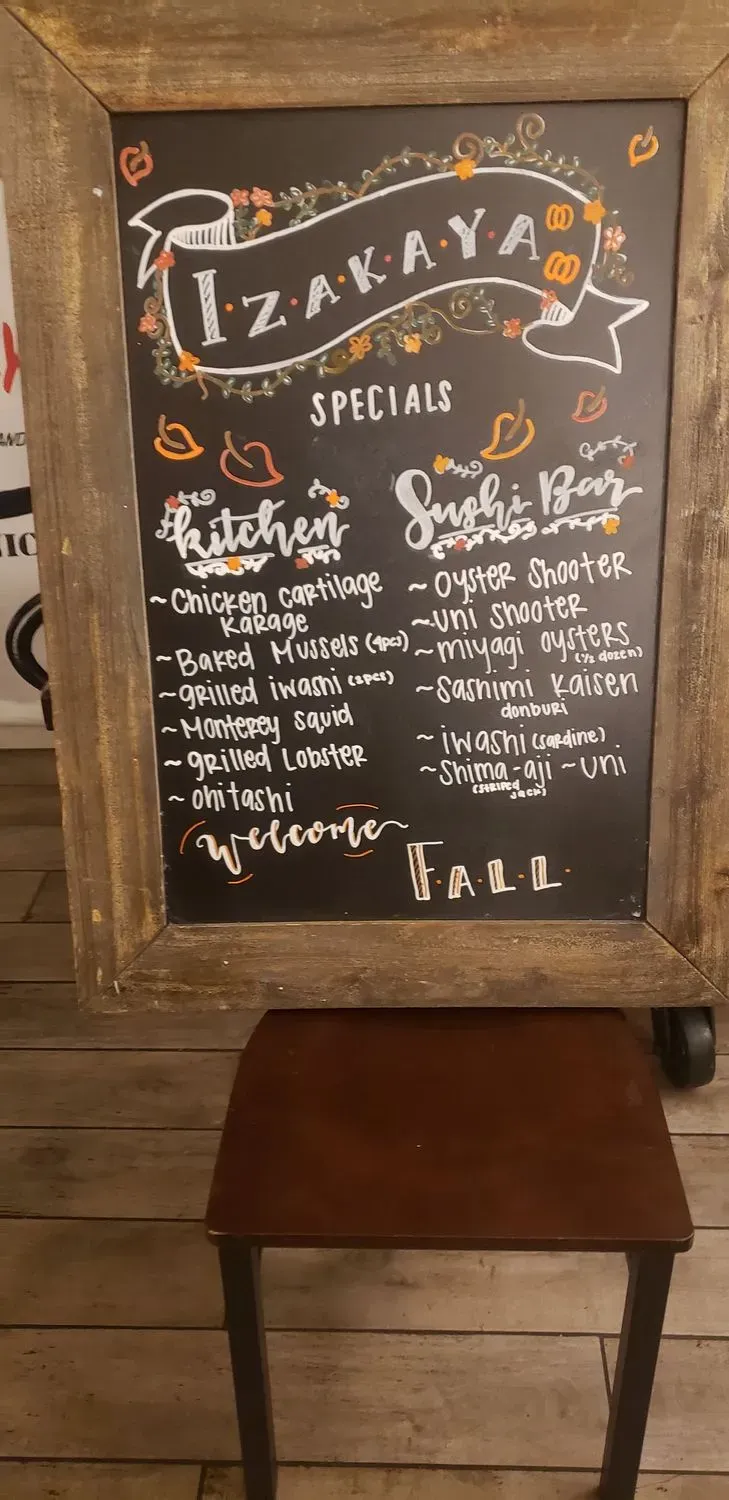 IZAKAYA
SPECIALS
kitchen
~ Chicken cartilage
karage
~ Baked Mussels (4pcs)
~ grilled iwashi (2pcs)
~ Monterey squid
~ grilled Lobster
~ ohitashi
Sushi Bar
~ Oyster Shooter
~ uni shooter
~ miyagi oysters
(1/2 dozen)
~ Sashimi kaisen
donburi
~ iwashi (sardine)
~ Shima-aji ~ uni
(striped
jack)
welcome
FALL
AND